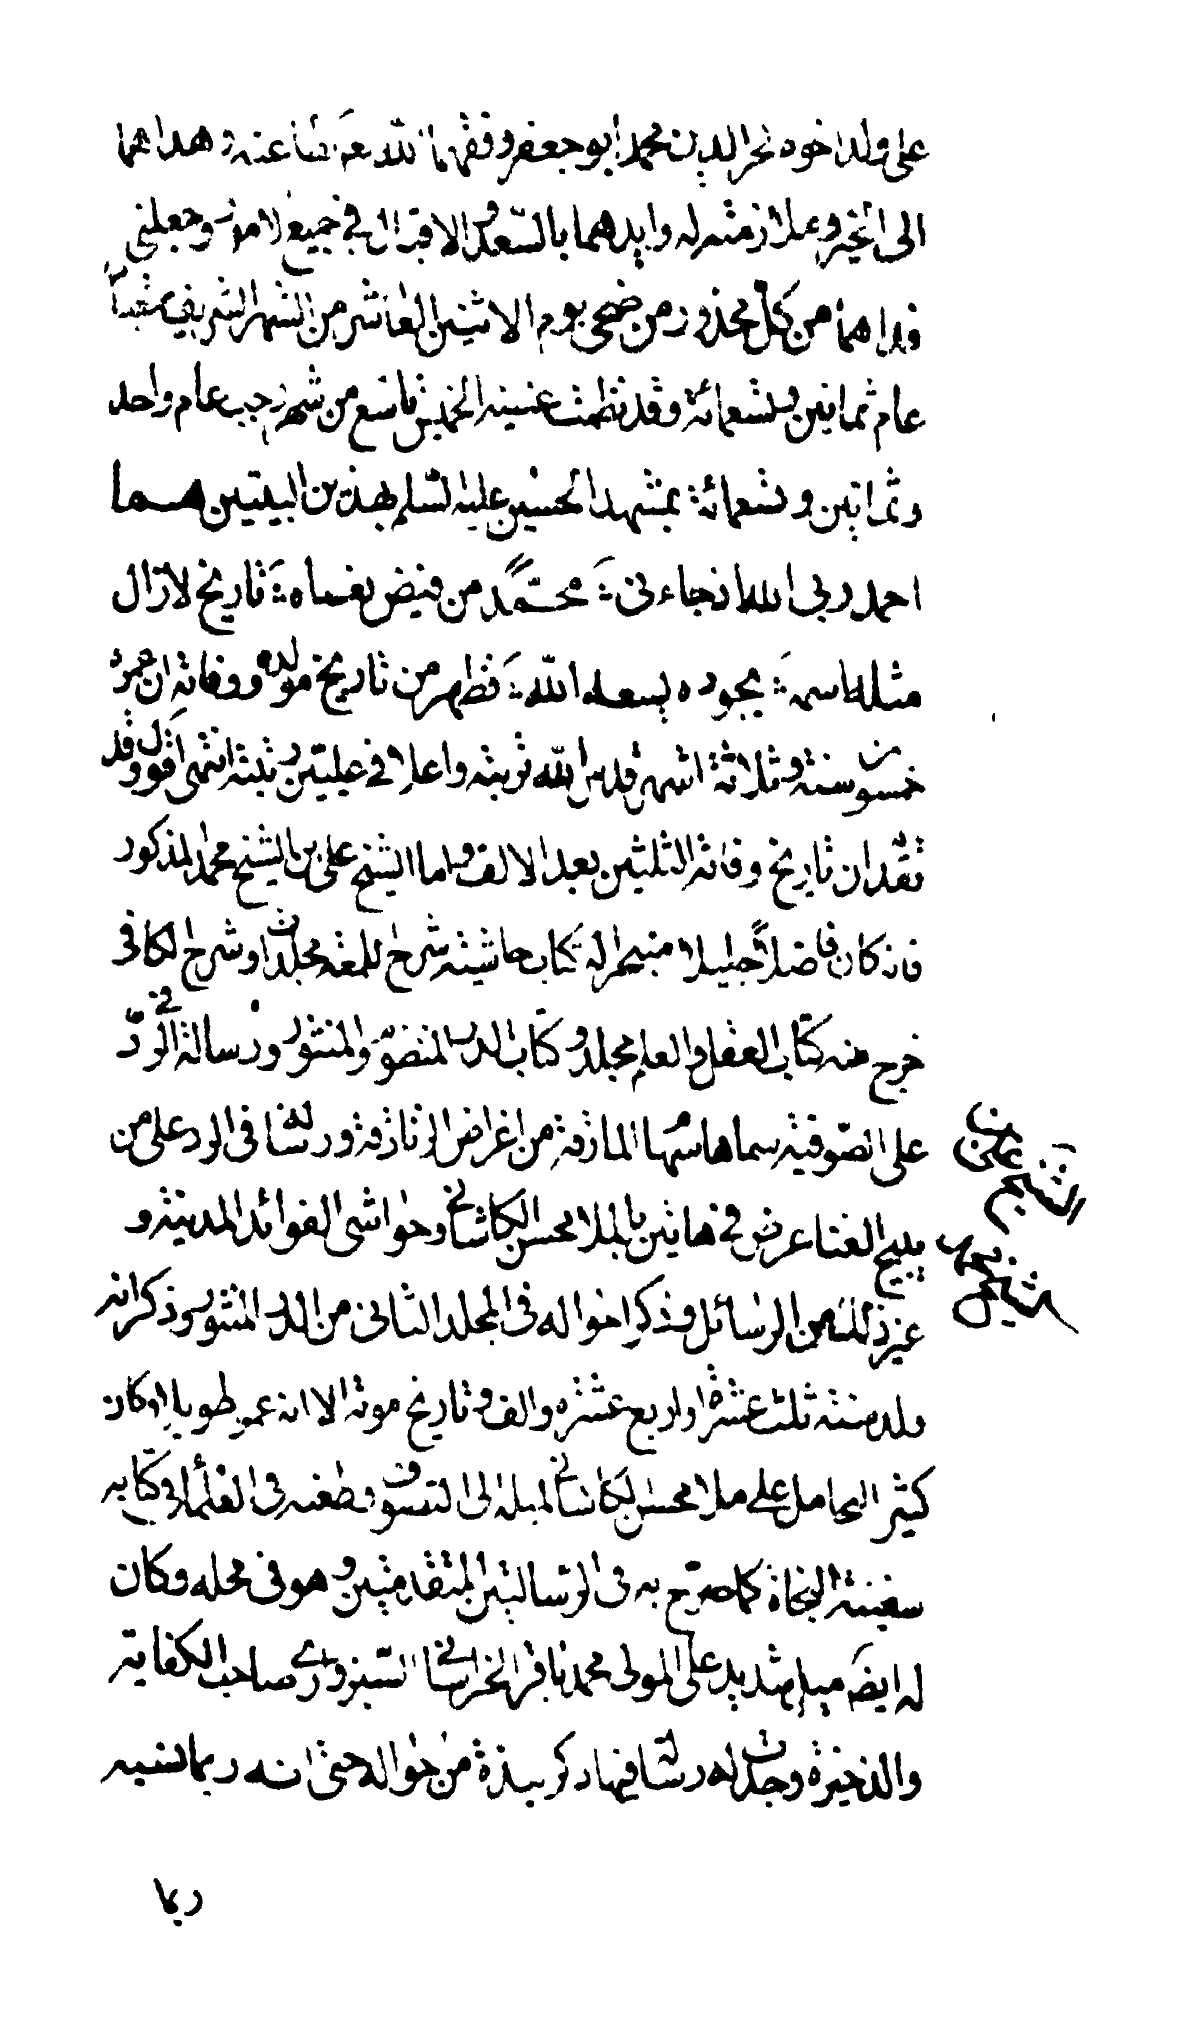 على ولداخوه فخر الدين محمد ابو جعفر وفقهما الله تعالى لطاعته وهداهما
الى الخير وملازمته له وايدهما بالسعد والاقبال في جميع الامور وجعلني
فداهما من كل محذور من ضحى يوم الاثنين العاشر من الشهر الشريف شعبان
عام ثمانين وتسعمائة وقد نظمت عشية الخميس تاسع من شهر رجب عام واحد
وثمانين وتسعمائة بمشهد الحسين عليه السلم بهذين البيتين هما
احمد ربي الله اذ جاءني محمد من فيض نعماه تاريخ لا زال
مثله اسمه بجوده يسعده الله فظهر من تاريخ مولده ووفاته ان عمره
خمسون سنة وثلاثة اشهر قدس الله تربته واعلا في عليين رتبته انتهى اقول وقد
تقدم ان تاريخ وفاته الثلثين بعد الالف واما الشيخ علي بن الشيخ محمد المذكور
فانه كان فاضلا جليلا متبحرا له كتاب حاشية شرح اللمعة مجلدان وشرح الكافي
خرج منه كتاب العقل والعلم مجلد وكتاب الدر المنضود والمنثور ورسالة في الرد
على الصوفية سماها السهام المارقة من اغراض الزنادقة ورسالة في الرد على من
يبيح الغنا عرض في هاتين بالملا محسن الكاشاني وحواشي الفوائد المدنية و
غير ذلك من الرسائل وذكر احواله في المجلد الثاني من الدر المنثور وذكر انه
ولد سنة ثلث عشرة او اربع عشرة والف وتاريخ موته الا انه عمر طويلا وكان
كثير التحامل على ملا محسن الكاشاني لميله الى التصوف وطعنه في العلماء في كتابه
سفينة النجاة كما صرح به في الرسالتين المتقدمتين وهو في محله وكان
له ايضا ميل شديد على المولى محمد باقر الخراساني السبزواري صاحب الكفاية
والذخيرة وجدت له رسالة فيها ذكر نبذة من احواله حتى انه ربما نسبه
ربما
الشيخ علي بن
الشيخ